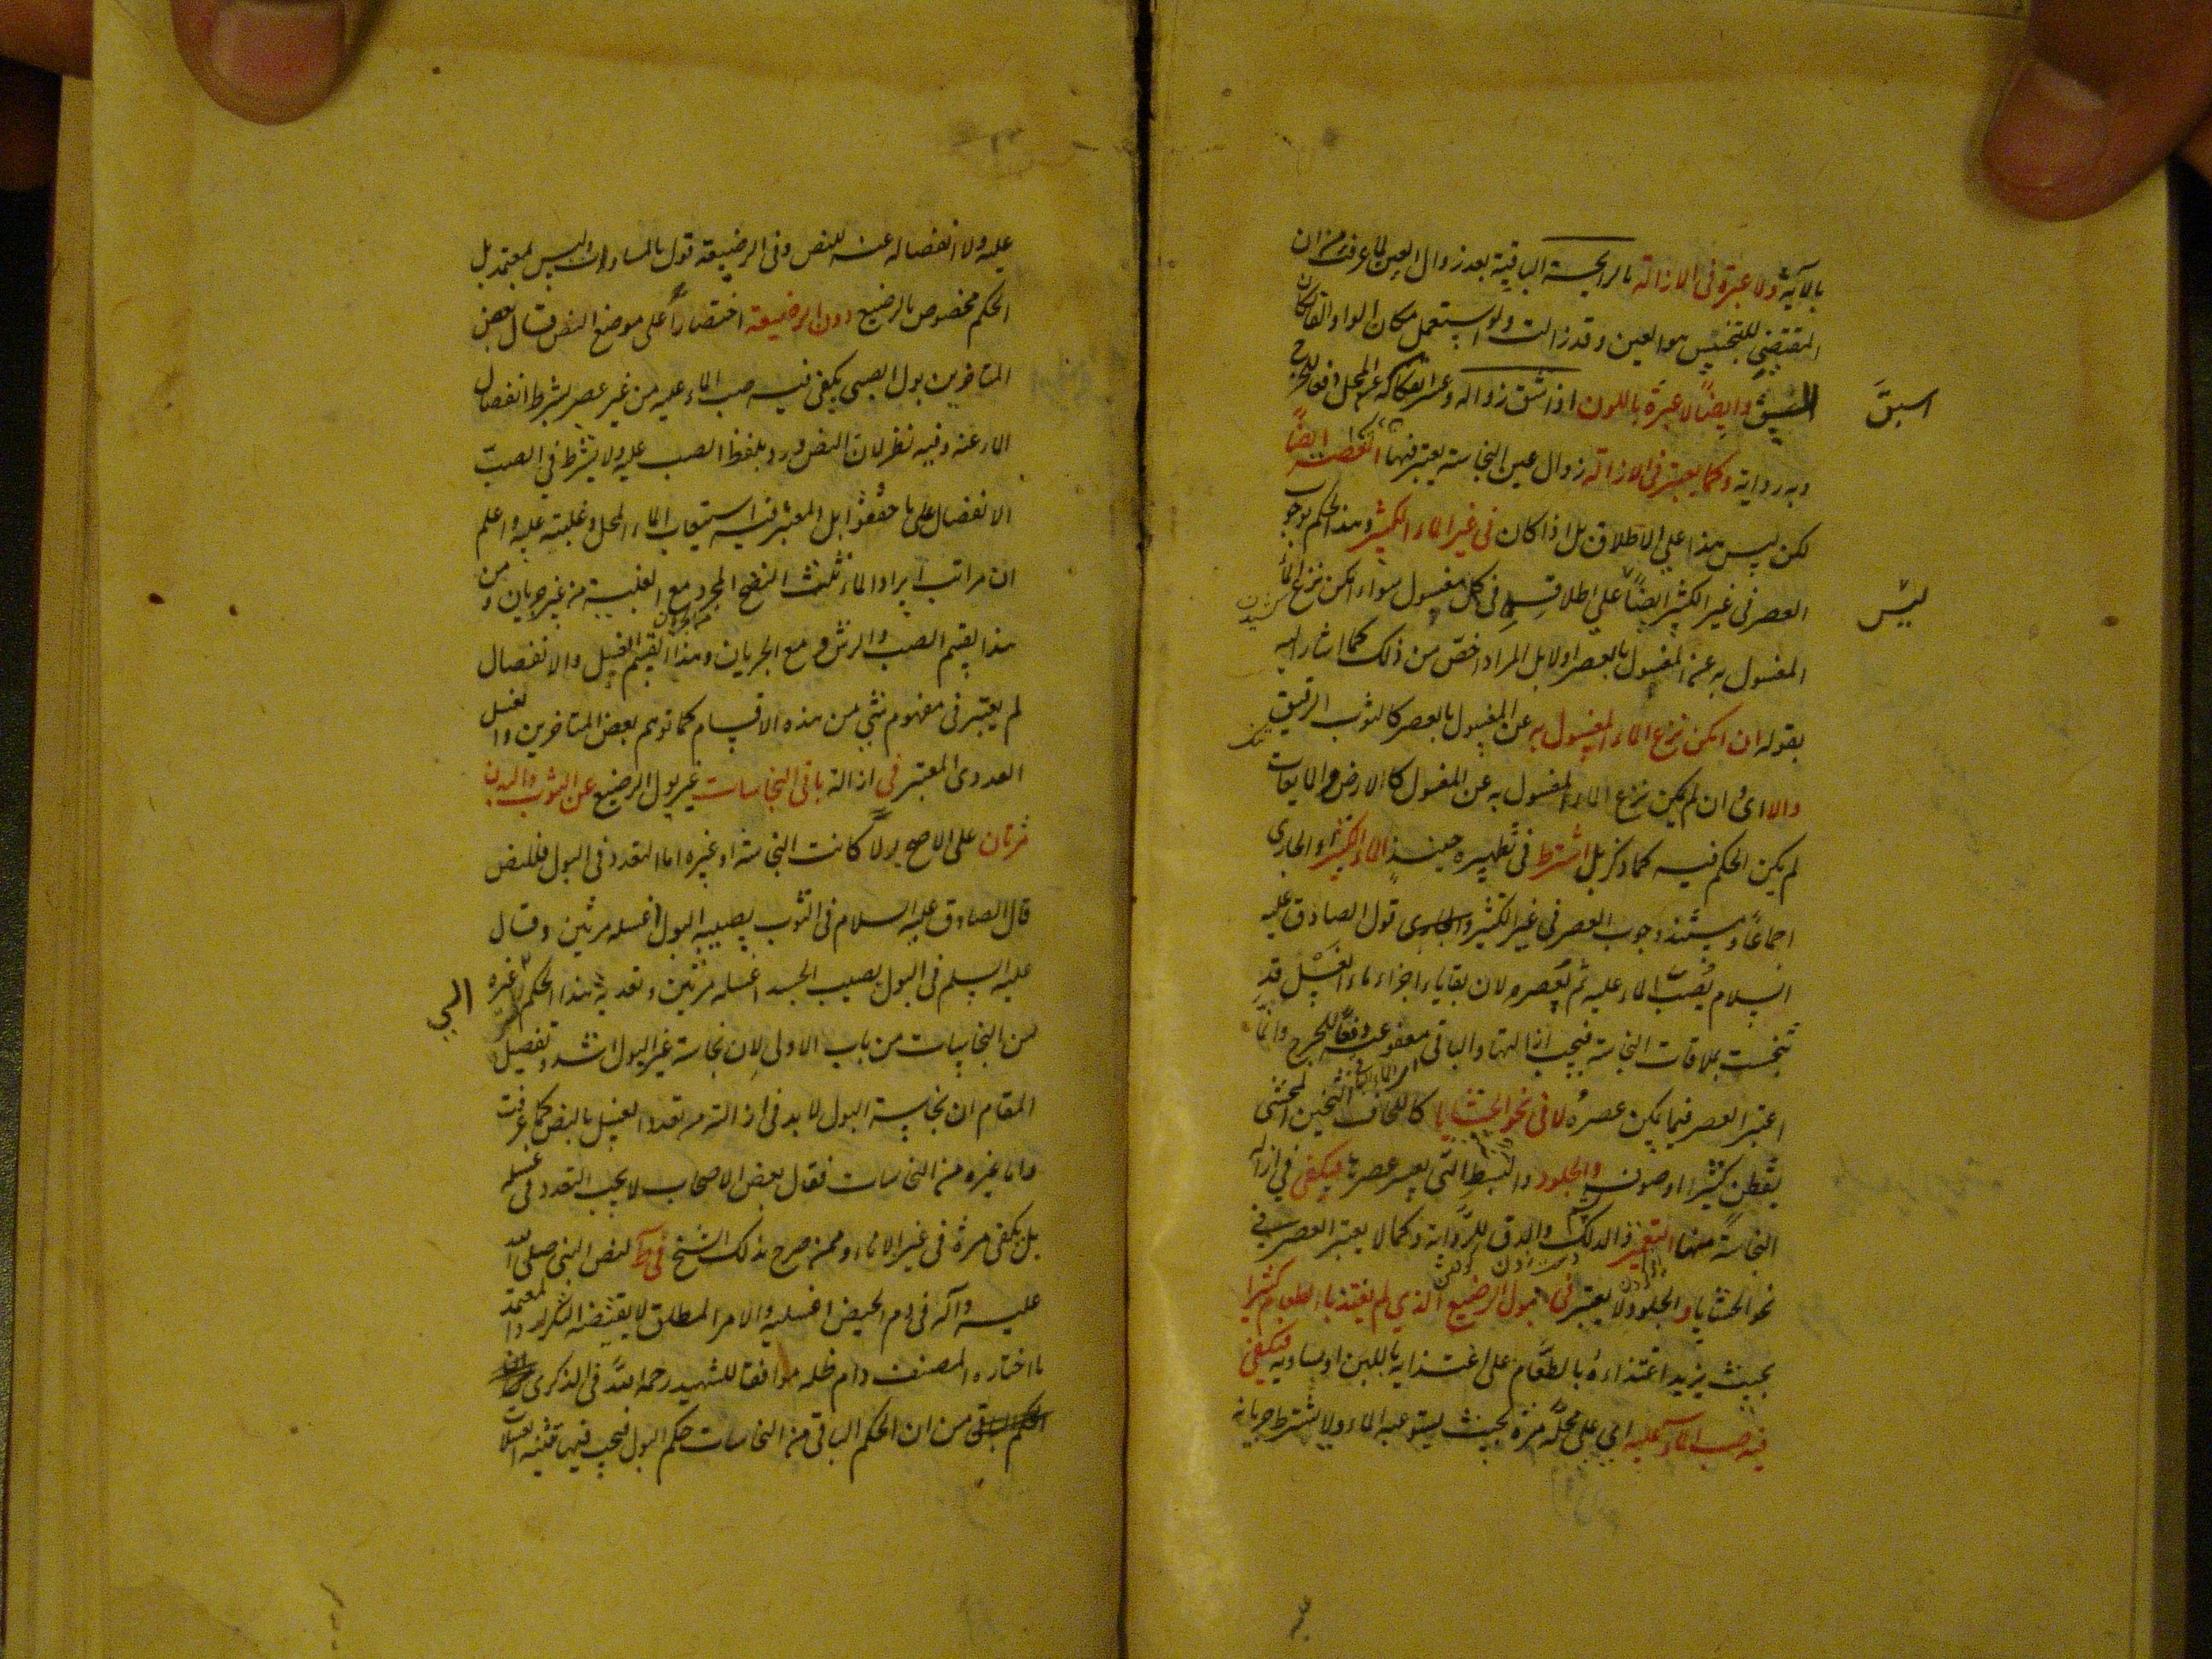 بالآية ولا عبرة فى الازالة بالرايحة الباقية بعد زوال العين لما عرفت من ان
المقتضى للتنجيس هو العين وقد زالت ولو استعمل مكان الواو الفا كان
اسبق
وايضا لا عبرة باللون اذا شق زواله وعسر انفكاكه عن المحل دفعا للحرج
وبه رواية وكما يعتبر فى الازالة زوال عين النجاسة يعتبر فيها العصر ايضا
لكن ليس هذا على الاطلاق بل اذا كان فى غير الماء الكثير وهذا الحكم بوجوب
العصر فى غير الكثير ايضا على اطلاقه فى كل مغسول سواء امكن نزع الماء
ليس
المغسول به عن المغسول بالعصر اولا بل المراد اخص من ذلك كما اشار اليه
بقوله ان امكن نزع الماء المغسول به عن المغسول بالعصر كالثوب الرقيق
والا اى وان لم يمكن نزع الماء المغسول به عن المغسول كالارض والمايعات
لم يكن الحكم فيه كما ذكر بل اشترط فى تطهيره حينئذ الماء الكثير او الجارى
اجماعا ومستند وجوب العصر فى غير الكثير والجارى قول الصادق عليه
السلام يصب الماء عليه ثم يعصره لان بقايا اجزاء ماء الغسل قد
تنجست بملاقات النجاسة فيجب ازالتها والباقى معفو عنه دفعا للحرج وانما
اى الماء الباقى
اعتبر العصر فيما يمكن عصره لا فى نحو الحشايا كاللحاف الثخين المحشى
بقطن كثير او صوف والجلود والبسط التى يعسر عصرها فيكفى فى ازالة
النجاسة منها التغميز والدلك والدق للرواية وكما لا يعتبر العصر فى
نحو الحشايا والجلود ولا يعتبر فى بول الرضيع الذى لم يغتذ بالطعام كثيرا
بحيث يزيد اغتذاءه بالطعام على اغتذايه باللبن او يساويه فيكفى
فيه صب الماء عليه اى على محله مرة بحيث يستوعبه الماء ولا يشترط جريانه
عليه ولا انفصاله عنه للنص وفى الرضيعة قول بالمساواة وليس بمعتمد بل
الحكم مخصوص بالرضيع دون الرضيعة اختصارا على موضع النص وقال بعض
المتاخرين بول الصبى يكفى فيه صب الماء عليه من غير عصر بشرط انفصال
الماء عنه وفيه نظر لان النص ورد بلفظ الصب عليه ولا يشترط فى الصب
الانفصال على ما حققوا بل المعتبر فيه استيعاب الماء المحل وغلبته عليه واعلم
ان مراتب ايراد الماء ثلث النضح المجرد مع الغلبة من غير جريان ومن
هذا يقسم الصب والرش ومع الجريان وهذا القسم الغسل والانفصال
لم يعتبر فى مفهوم شئ من هذه الاقسام كما توهم بعض المتاخرين والغسل
العددى المعتبر فى ازالة باقى النجاسات غير بول الرضيع عن الثوب والبدن
مرتان على الاصح بولا كانت النجاسة او غيره اما التعدد فى البول فللنص
قال الصادق عليه السلام فى الثوب يصيبه البول اغسله مرتين وقال
عليه السلم فى البول يصيب الجسد اغسله مرتين وتعدية هذا الحكم الى غيره
الى
من النجاسات من باب الاولى لان نجاسة غير البول اشد وتفصيل
المقام ان نجاسة البول لا بد فى ازالته من تعدد الغسل بالنص كما عرفت
واما غيره من النجاسات فقال بعض الاصحاب لا يجب التعدد فى غسله
بل يكفى مرة فى غير الاناء وممن صرح بذلك الشيخ فى ط لنص النبى صلى الله
عليه وآله فى دم الحيض اغسليه والامر المطلق لا يقتضى التكرار والمعتمد
ما اختاره المصنف دام ظله موافقا للشهيد رحمه الله فى الذكرى
من ان الحكم الباقى من النجاسات حكم البول فيجب فيها تثنية الغسلات